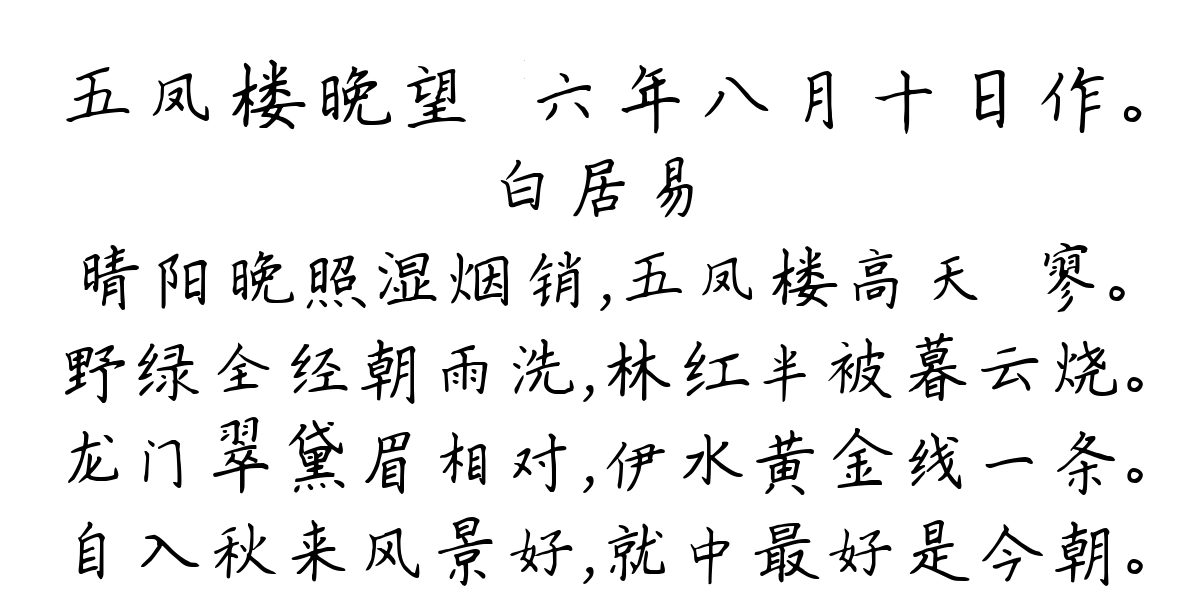 五凤楼晚望 六年八月十日作。
白居易
晴阳晚照湿烟销,五凤楼高天 寥。
野绿全经朝雨洗,林红半被暮云烧。
龙门翠黛眉相对,伊水黄金线一条。
自入秋来风景好,就中最好是今朝。